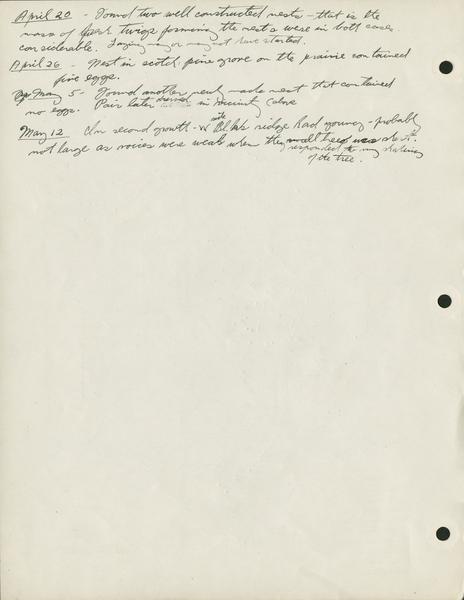 April 20 - Found two well constructed nests - that is the
mass of twigs forming the nests were in both cases
considerable. Laying may or may not have started.
April 26 - Nest in scotch pine grove on the prairie contained
five eggs.
May 5 - Found another newly made nest that contained
no eggs. Pair later in vicinity
May 12 In second growth - W ridge had young - probably
not large as voices were weak when they
responded to my shaking
of the tree.